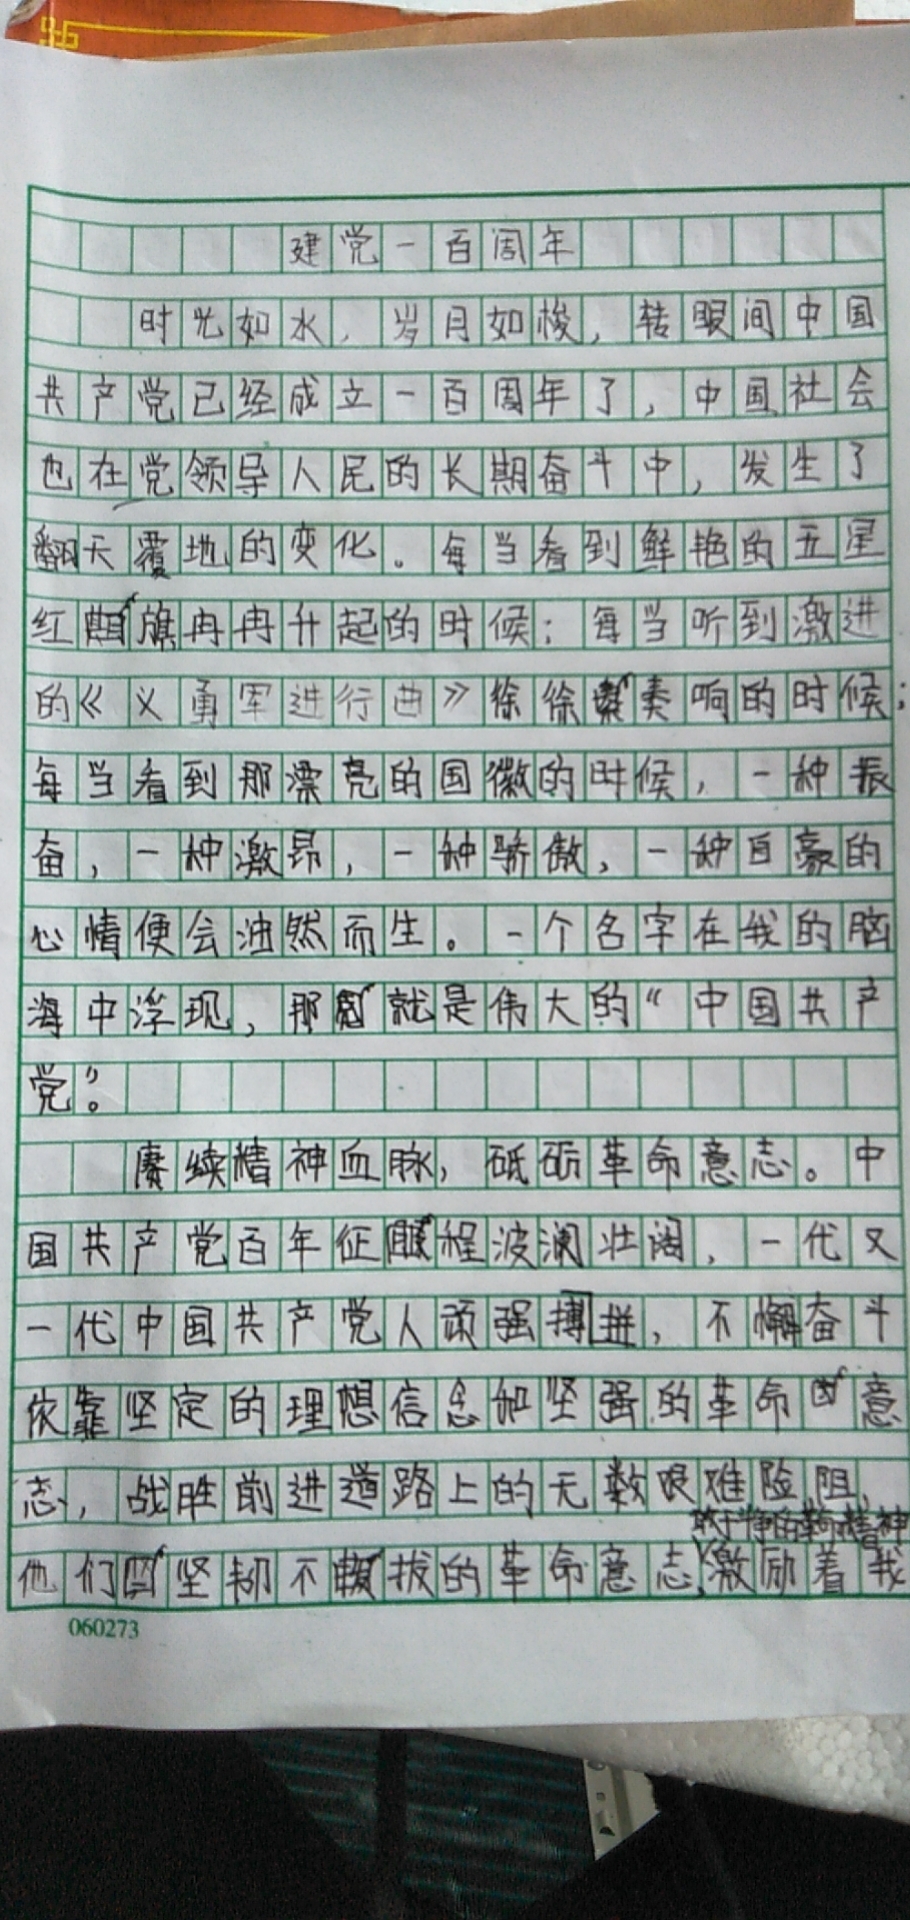 建党一百周年
时光如水，岁月如梭，转眼间中国
共产党已经成立一百周年了，中国社会
也在党领导人民的长期奋斗中，发生了
翻天覆地的变化。每当看到鲜艳的五星
红旗冉冉升起的时候；每当听到激进
的《义勇军进行曲》徐徐奏响的时候；
每当看到那漂亮的国徽的时候，一种振
奋，一种激昂，一种骄傲，一种自豪的
心情便会油然而生。一个名字在我的脑
海中浮现，那就是伟大的“中国共产
党”。
赓续精神血脉，砥砺革命意志。中
国共产党百年征程波澜壮阔，一代又
一代中国共产党人顽强搏拼，不懈奋斗
依靠坚定的理想信念和坚强的革命意
志，战胜前进道路上的无数艰难险阻，
敢于斗争的革命精神
他们坚韧不拔的革命意志，激励着我
060273